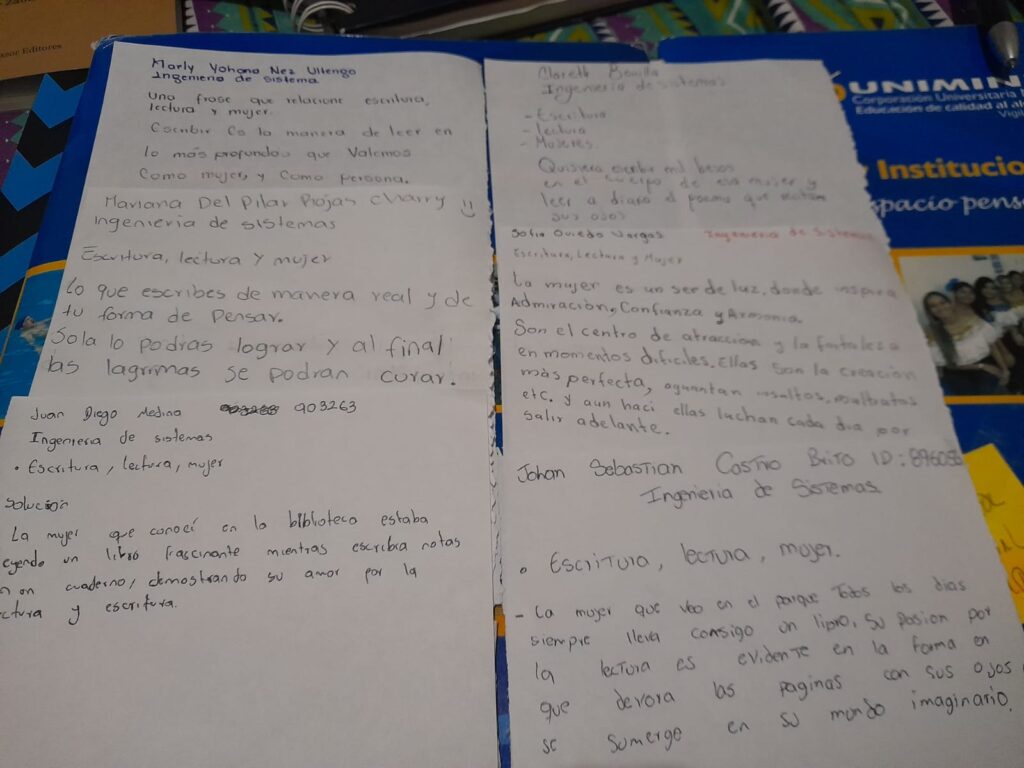 sor Editores
Marly Yohana Nez Ultengo
Ingenieria de Sistema
Una frase que relacione escritura,
lectura y mujer.
Escribir Es la manera de leer en
lo más profundo, que Valemos
Como mujer, y Como persona.
Mariana Del Pilar Rojas Charry
Ingenieria de sistemas
Escritura, lectura y mujer
Lo que escribes de manera real y de
tu forma de Pensar.
Sola lo podrias lograr y al final
las lagrimas se podran curar.
Juan Diego Medina 903263
Ingenieria de sistemas
• Escritura, lectura, mujer
Solución
La mujer que conocí en la biblioteca estaba
eyendo un libro fascinante mientras escribia notas
n un cuaderno, demostrando su amor por la
ctura y escritura.
Clareth Bonilla
Ingenieria de sistemas
- Escritura
- lectura
- Mujeres.
Quisiera escribir mil besos
en el cuerpo de esa mujer y
leer a diario el poema que recitan
sus ojos
Sofia Oviedo Vargas Ingenieria de Sistemas
Escritura, Lectura y Mujer
La mujer es un ser de luz, donde inspira
Admiración, Confianza y Armonia.
Son el centro de atracción y la fortaleza
en momentos dificiles. Ellas son la creación
más perfecta, aguantan insultos, maltratos
etc. y aun haci ellas luchan cada dia por
salir adelante.
Johan Sebastian Castro Brito ID: 896058
Ingenieria de Sistemas
• Escritura, lectura, mujer.
- La mujer que veo en el parque Todos los dias
siempre lleva consigo un libro. Su pasion por
la lectura es evidente en la forma en
que devora las paginas con sus ojos
se sumerge en su mundo imaginario.
UNIMIN
Corporación Universitaria
Educación de calidad al al
Vigil
Institucio
spacio pens